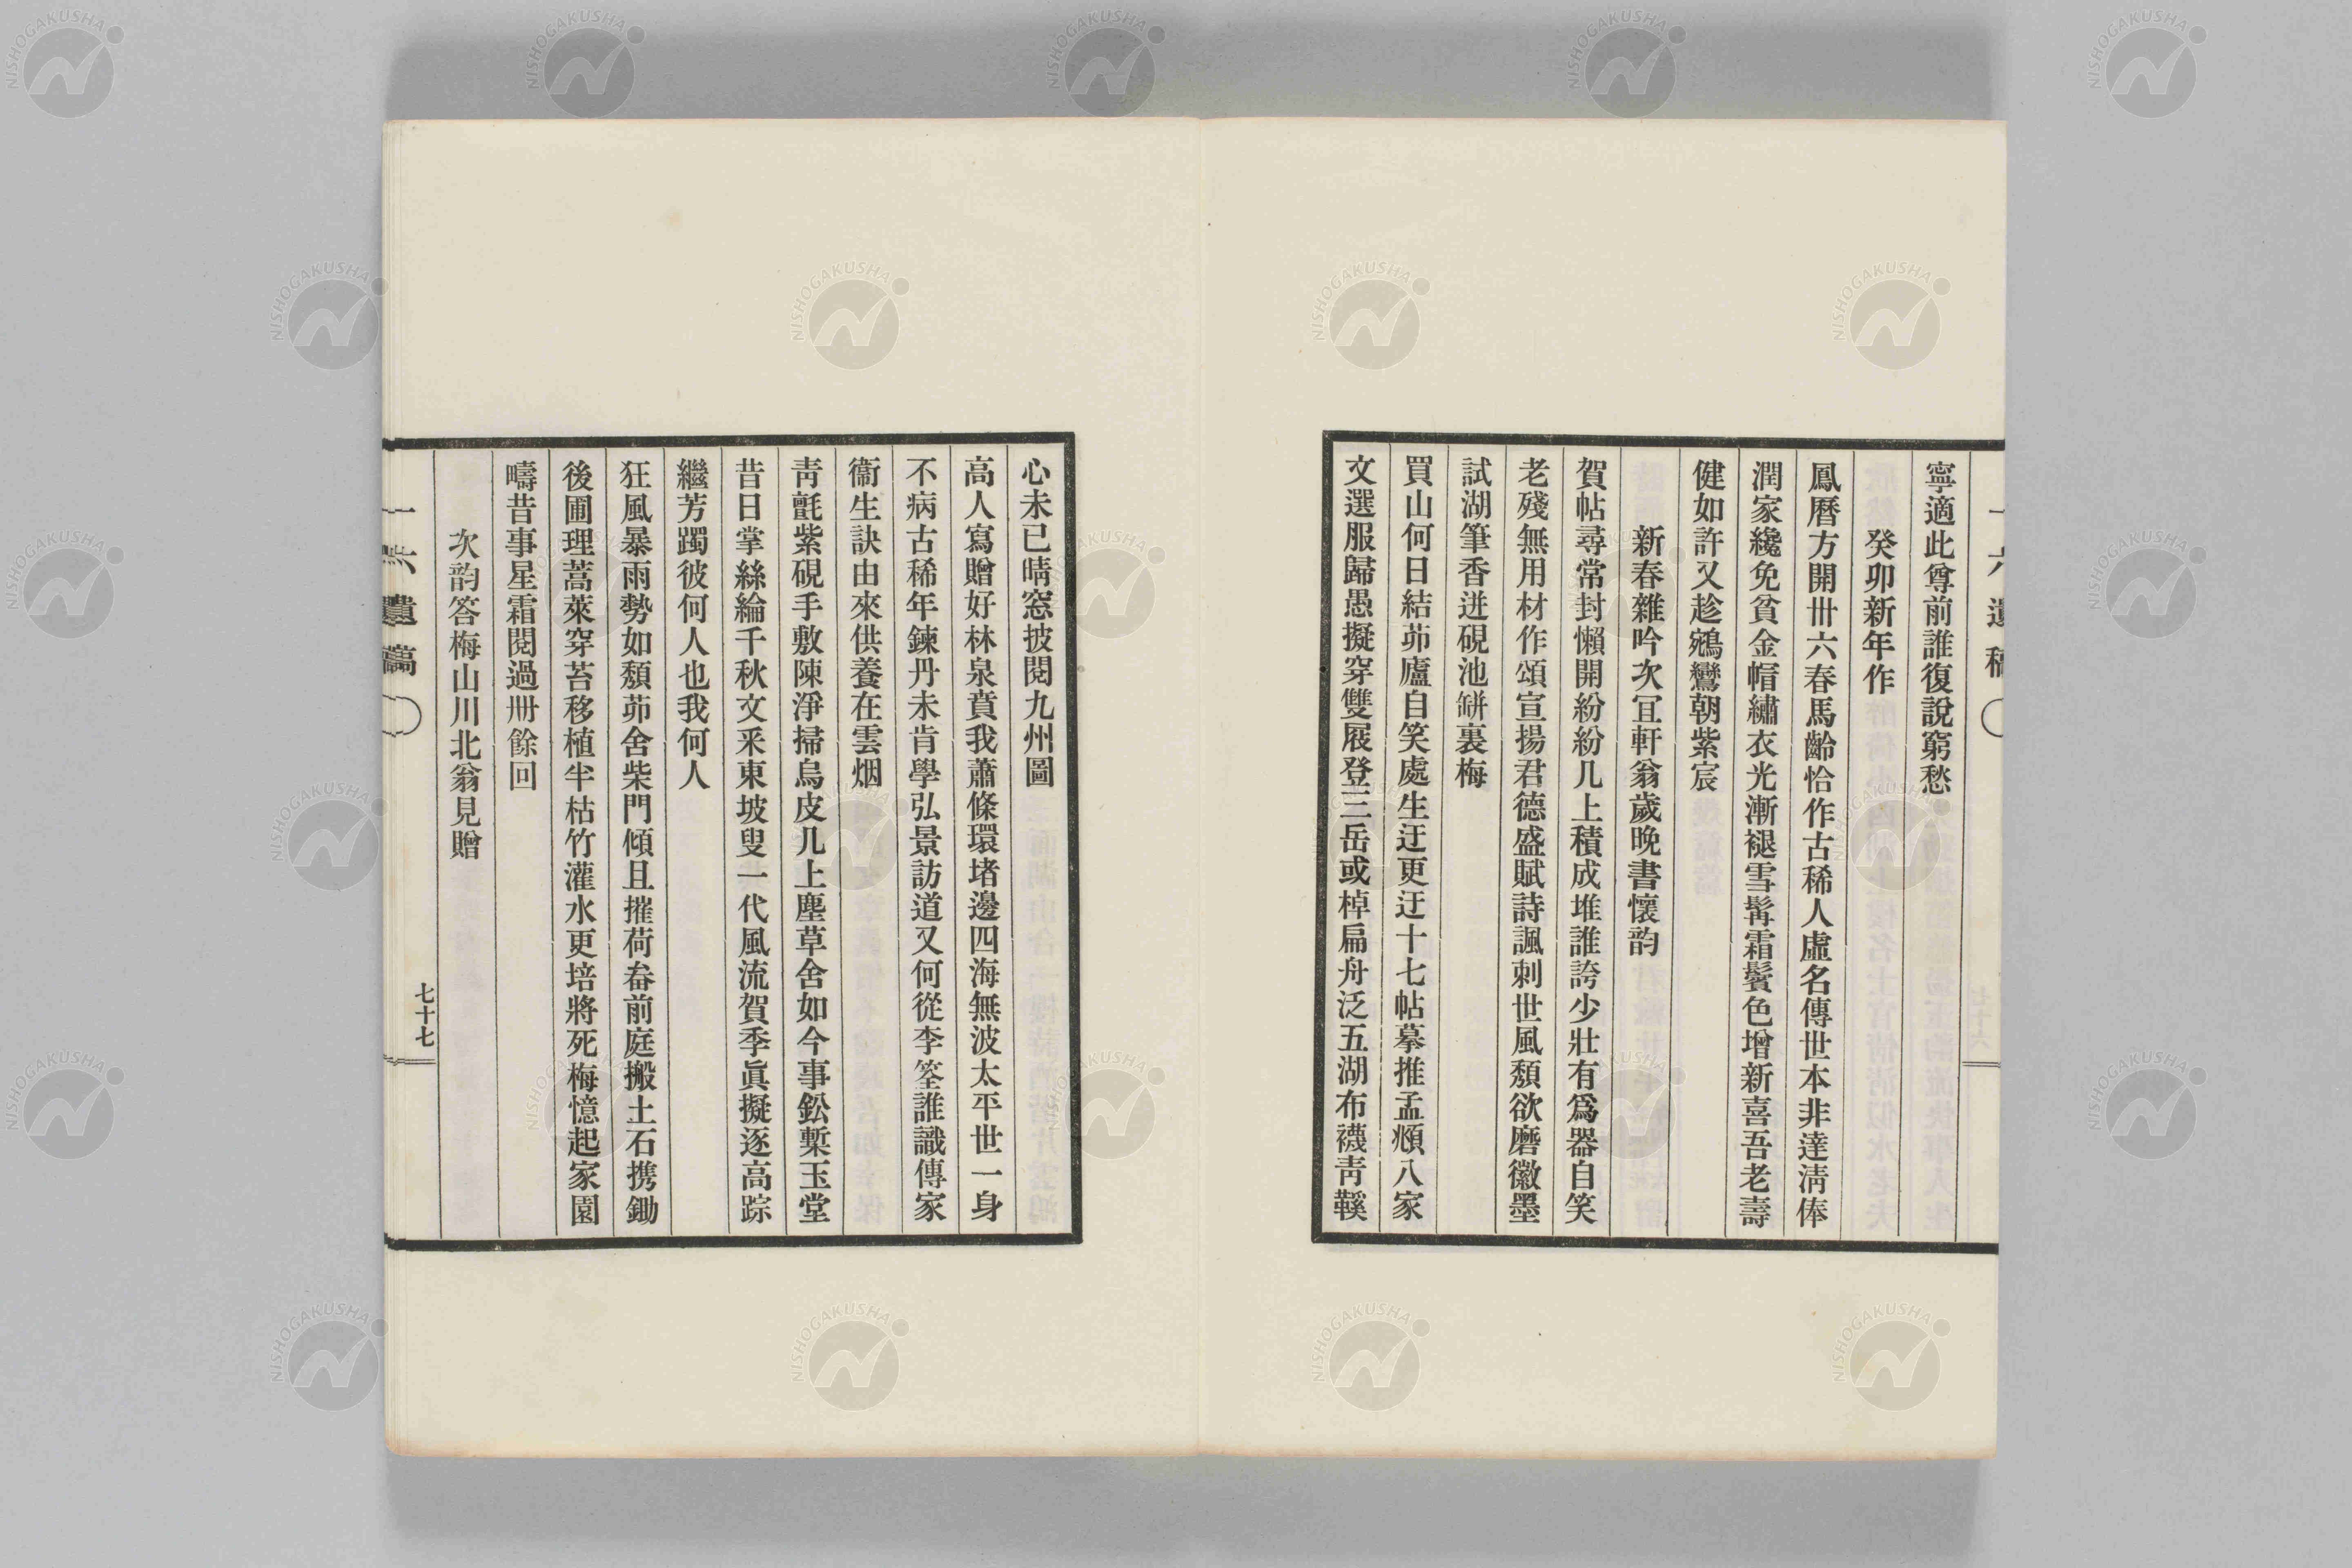 寧適此尊前誰復說窮愁
癸卯新年作
鳳曆方開卅六春馬齡恰作古稀人虛名傳世本非達淸俸
潤家纔免貧金帽繡衣光漸褪雪髯霜鬢色增新喜吾老壽
健如許又趁鵷鸞朝紫宸
新春雜吟次冝軒翁歲晚書懷韵
賀帖尋常封懶開紛紛几上積成堆誰誇少壯有爲器自笑
老殘無用材作頌宣揚君德盛賦詩諷刺世風頽欲磨徽墨
試湖筆香迸硯池缾裏梅
買山何日結茆廬自笑處生迂更迂十七帖摹推孟頫八家
文選服歸愚擬穿雙屐登三岳或棹扁舟泛五湖布襪靑鞵
心未已晴窓披閱九州圖
高人寫贈好林泉賁我蕭條環堵邊四海無波太平世一身
不病古稀年鍊丹未肯學弘景訪道又何從李筌誰識傳家
衞生訣由來供養在雲烟
靑氈紫硯手敷陳淨掃烏皮几上塵草舍如今事鈆槧玉堂
昔日掌絲綸千秋文采東坡叟一代風流賀季眞擬逐高踪
繼芳躅彼何人也我何人
狂風暴雨勢如頽茆舍柴門傾且摧荷畚前庭搬土石携鋤
後圃理蒿萊穿苔移植半枯竹灌水更培將死梅憶起家園
疇昔事星霜閱過卅餘回
次韵答梅山川北翁見贈
一六遺稿
七十七